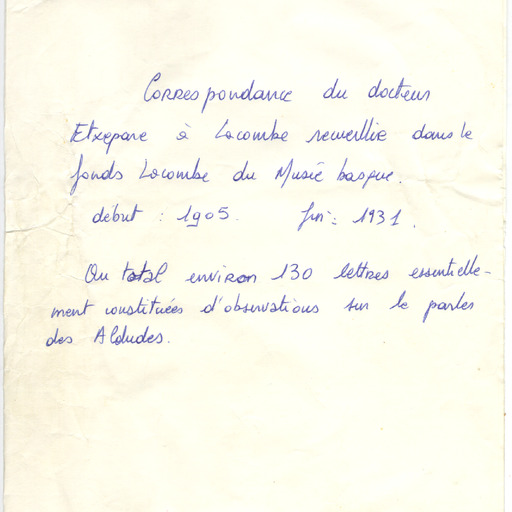 Correspondance du docteur
Etxepare à Lacombe recueillie dans le
fonds Lacombe du Musée basque.
début : 1905. fin : 1931.
Au total environ 130 lettres essentielle-
ment constituées d'observations sur le parler
des Aldudes.